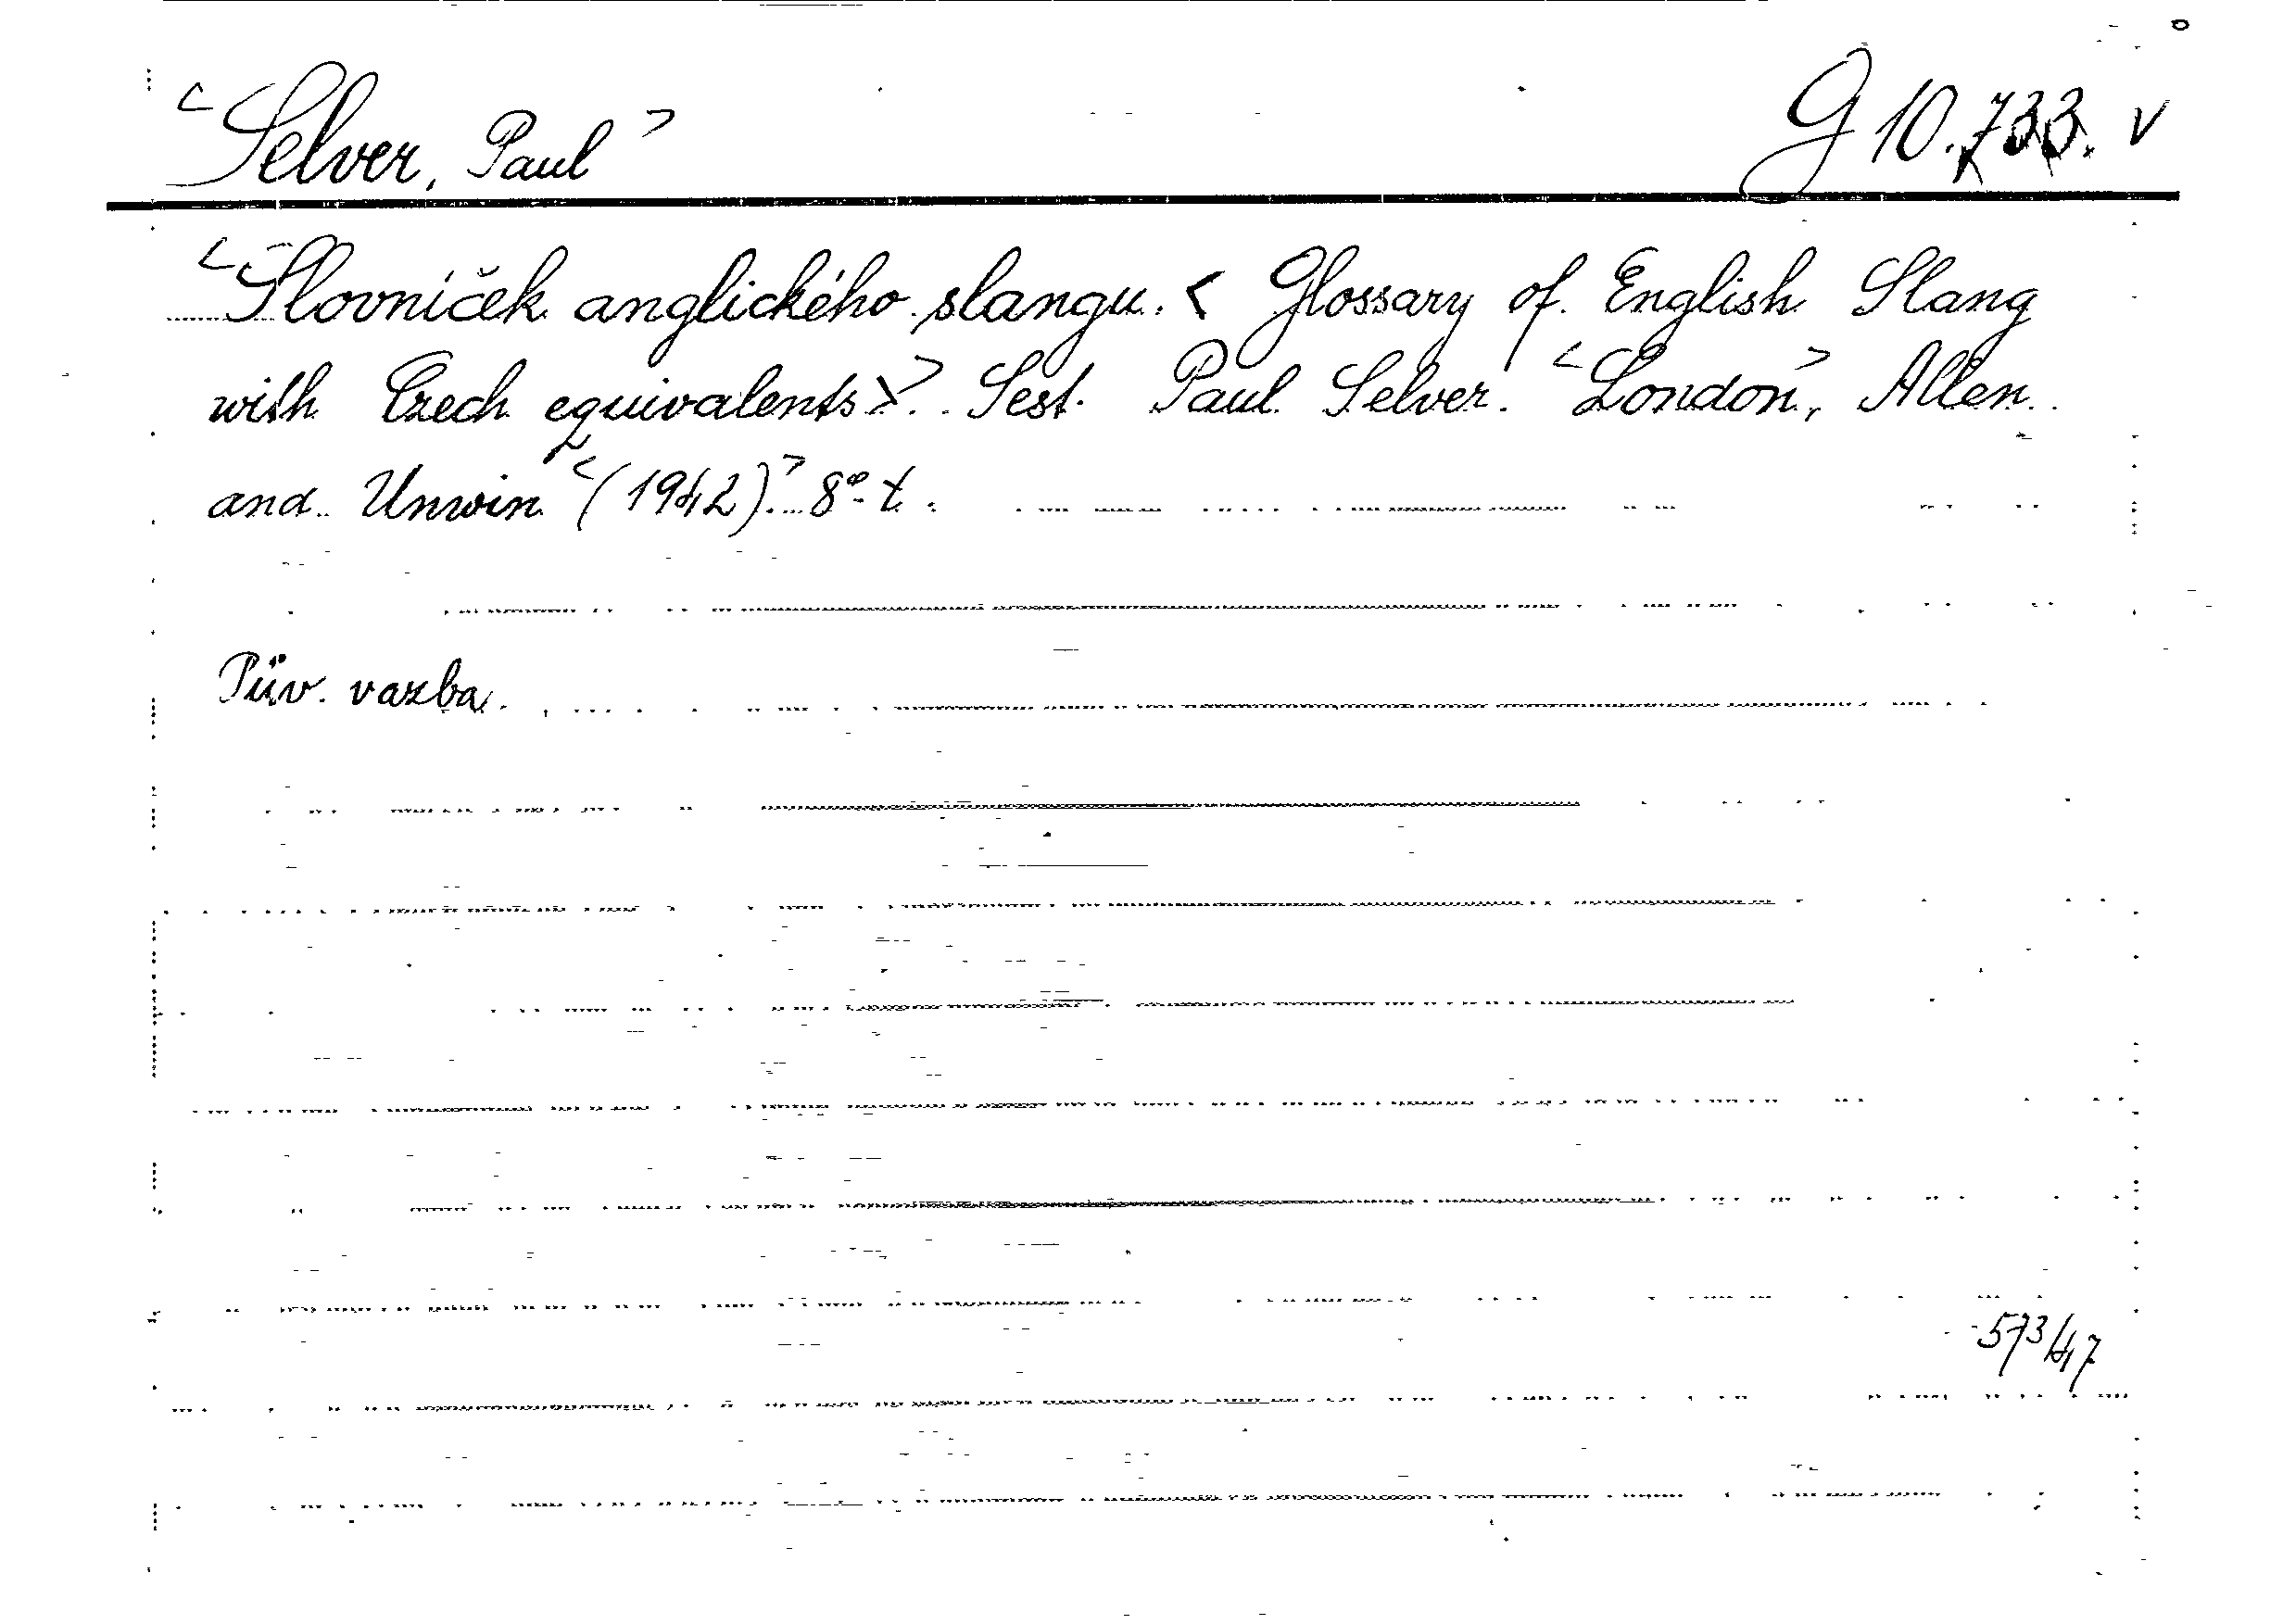 <Selver, Paul> G 10.733. v
<Slovníček anglického slangu. < Glossary of English Slang
with Czech equivalents>.> Sest. Paul Selver. <London>, Allen
and Unwin <(1942).> 8° t.
Pův. vazba.
573/47